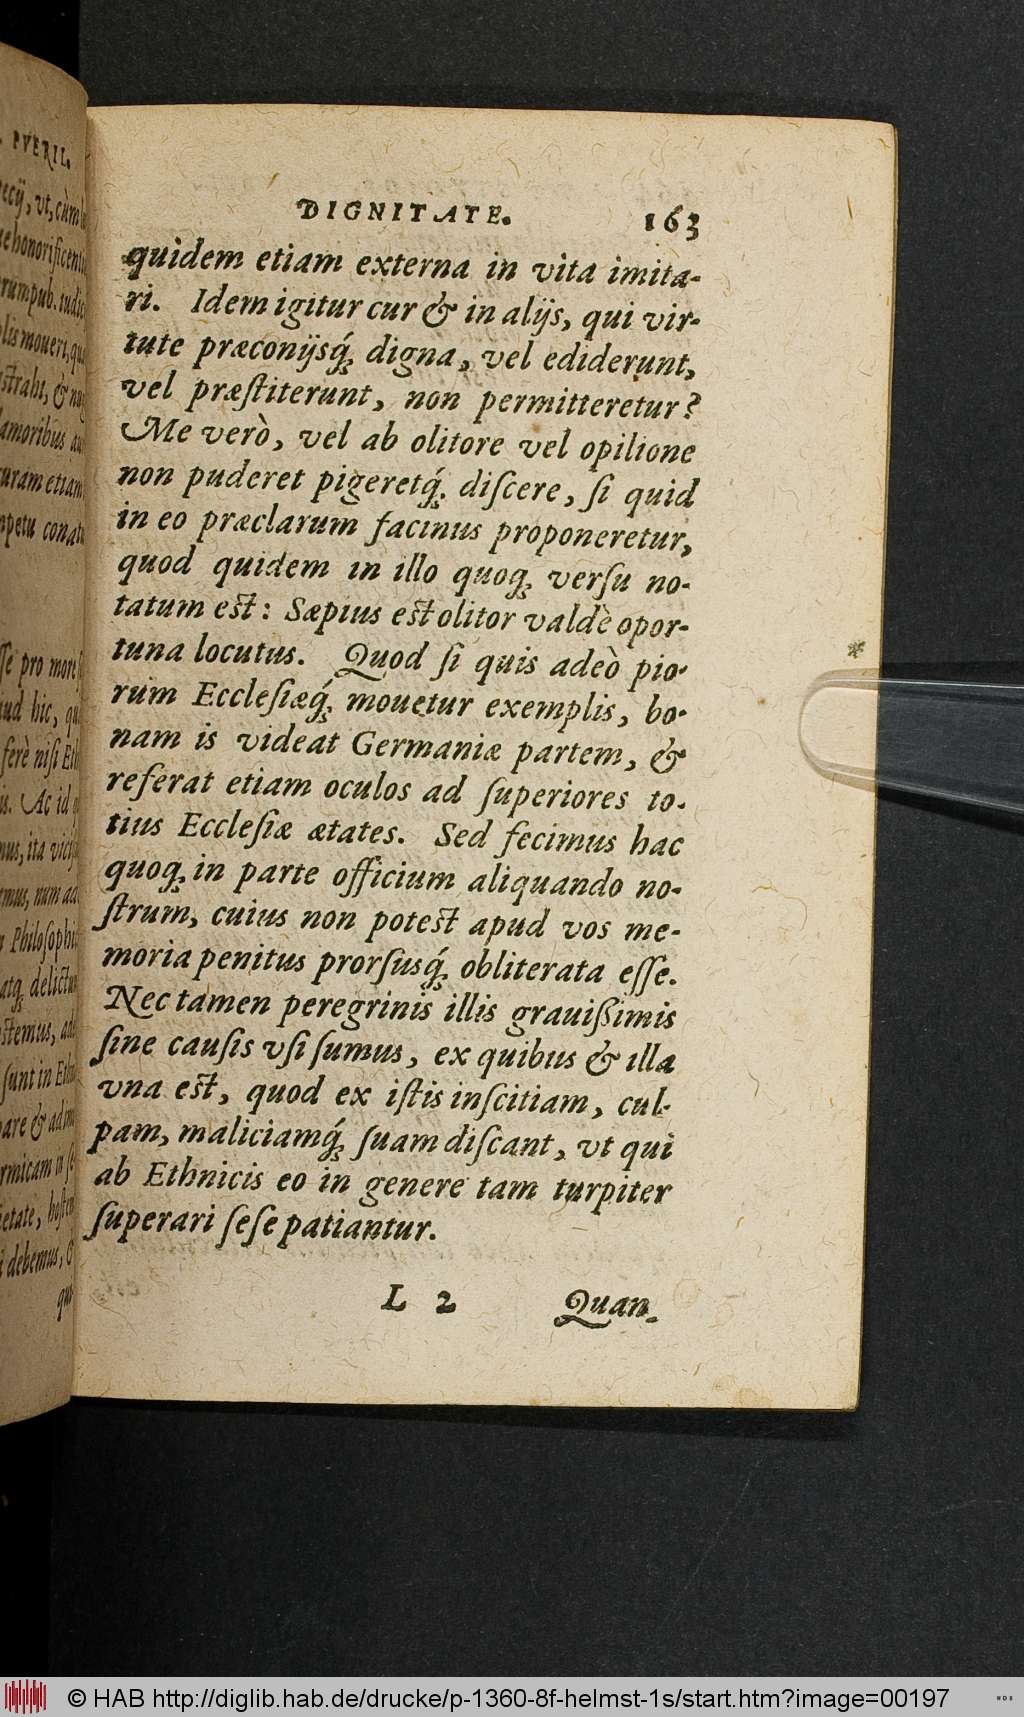 PVERIL.
DIGNITATE. 163
quidem etiam externa in vita imita-
ri. Idem igitur cur & in alijs, qui vir-
tute præconijsq́; digna, vel ediderunt,
vel præſtiterunt, non permitteretur?
Me verò, vel ab olitore vel opilione
non puderet pigeretq́; diſcere, ſi quid
in eo præclarum facinus proponeretur,
quod quidem in illo quoq; verſu no-
tatum eſt: Sæpius eſt olitor valdè opor-
tuna locutus. Quod ſi quis adeò pio-
rum Eccleſiæq́; mouetur exemplis, bo-
nam is videat Germaniæ partem, &
referat etiam oculos ad ſuperiores to-
tius Eccleſiæ ætates. Sed fecimus hac
quoq; in parte officium aliquando no-
ſtrum, cuius non poteſt apud vos me-
moria penitus prorſusq́; obliterata eſſe.
Nec tamen peregrinis illis grauißimis
ſine cauſis vſi ſumus, ex quibus & illa
vna eſt, quod ex iſtis inſcitiam, cul-
pam, maliciamq́; ſuam diſcant, vt qui
ab Ethnicis eo in genere tam turpiter
ſuperari ſeſe patiantur.
L 2 Quan-
© HAB http://diglib.hab.de/drucke/p-1360-8f-helmst-1s/start.htm?image=00197